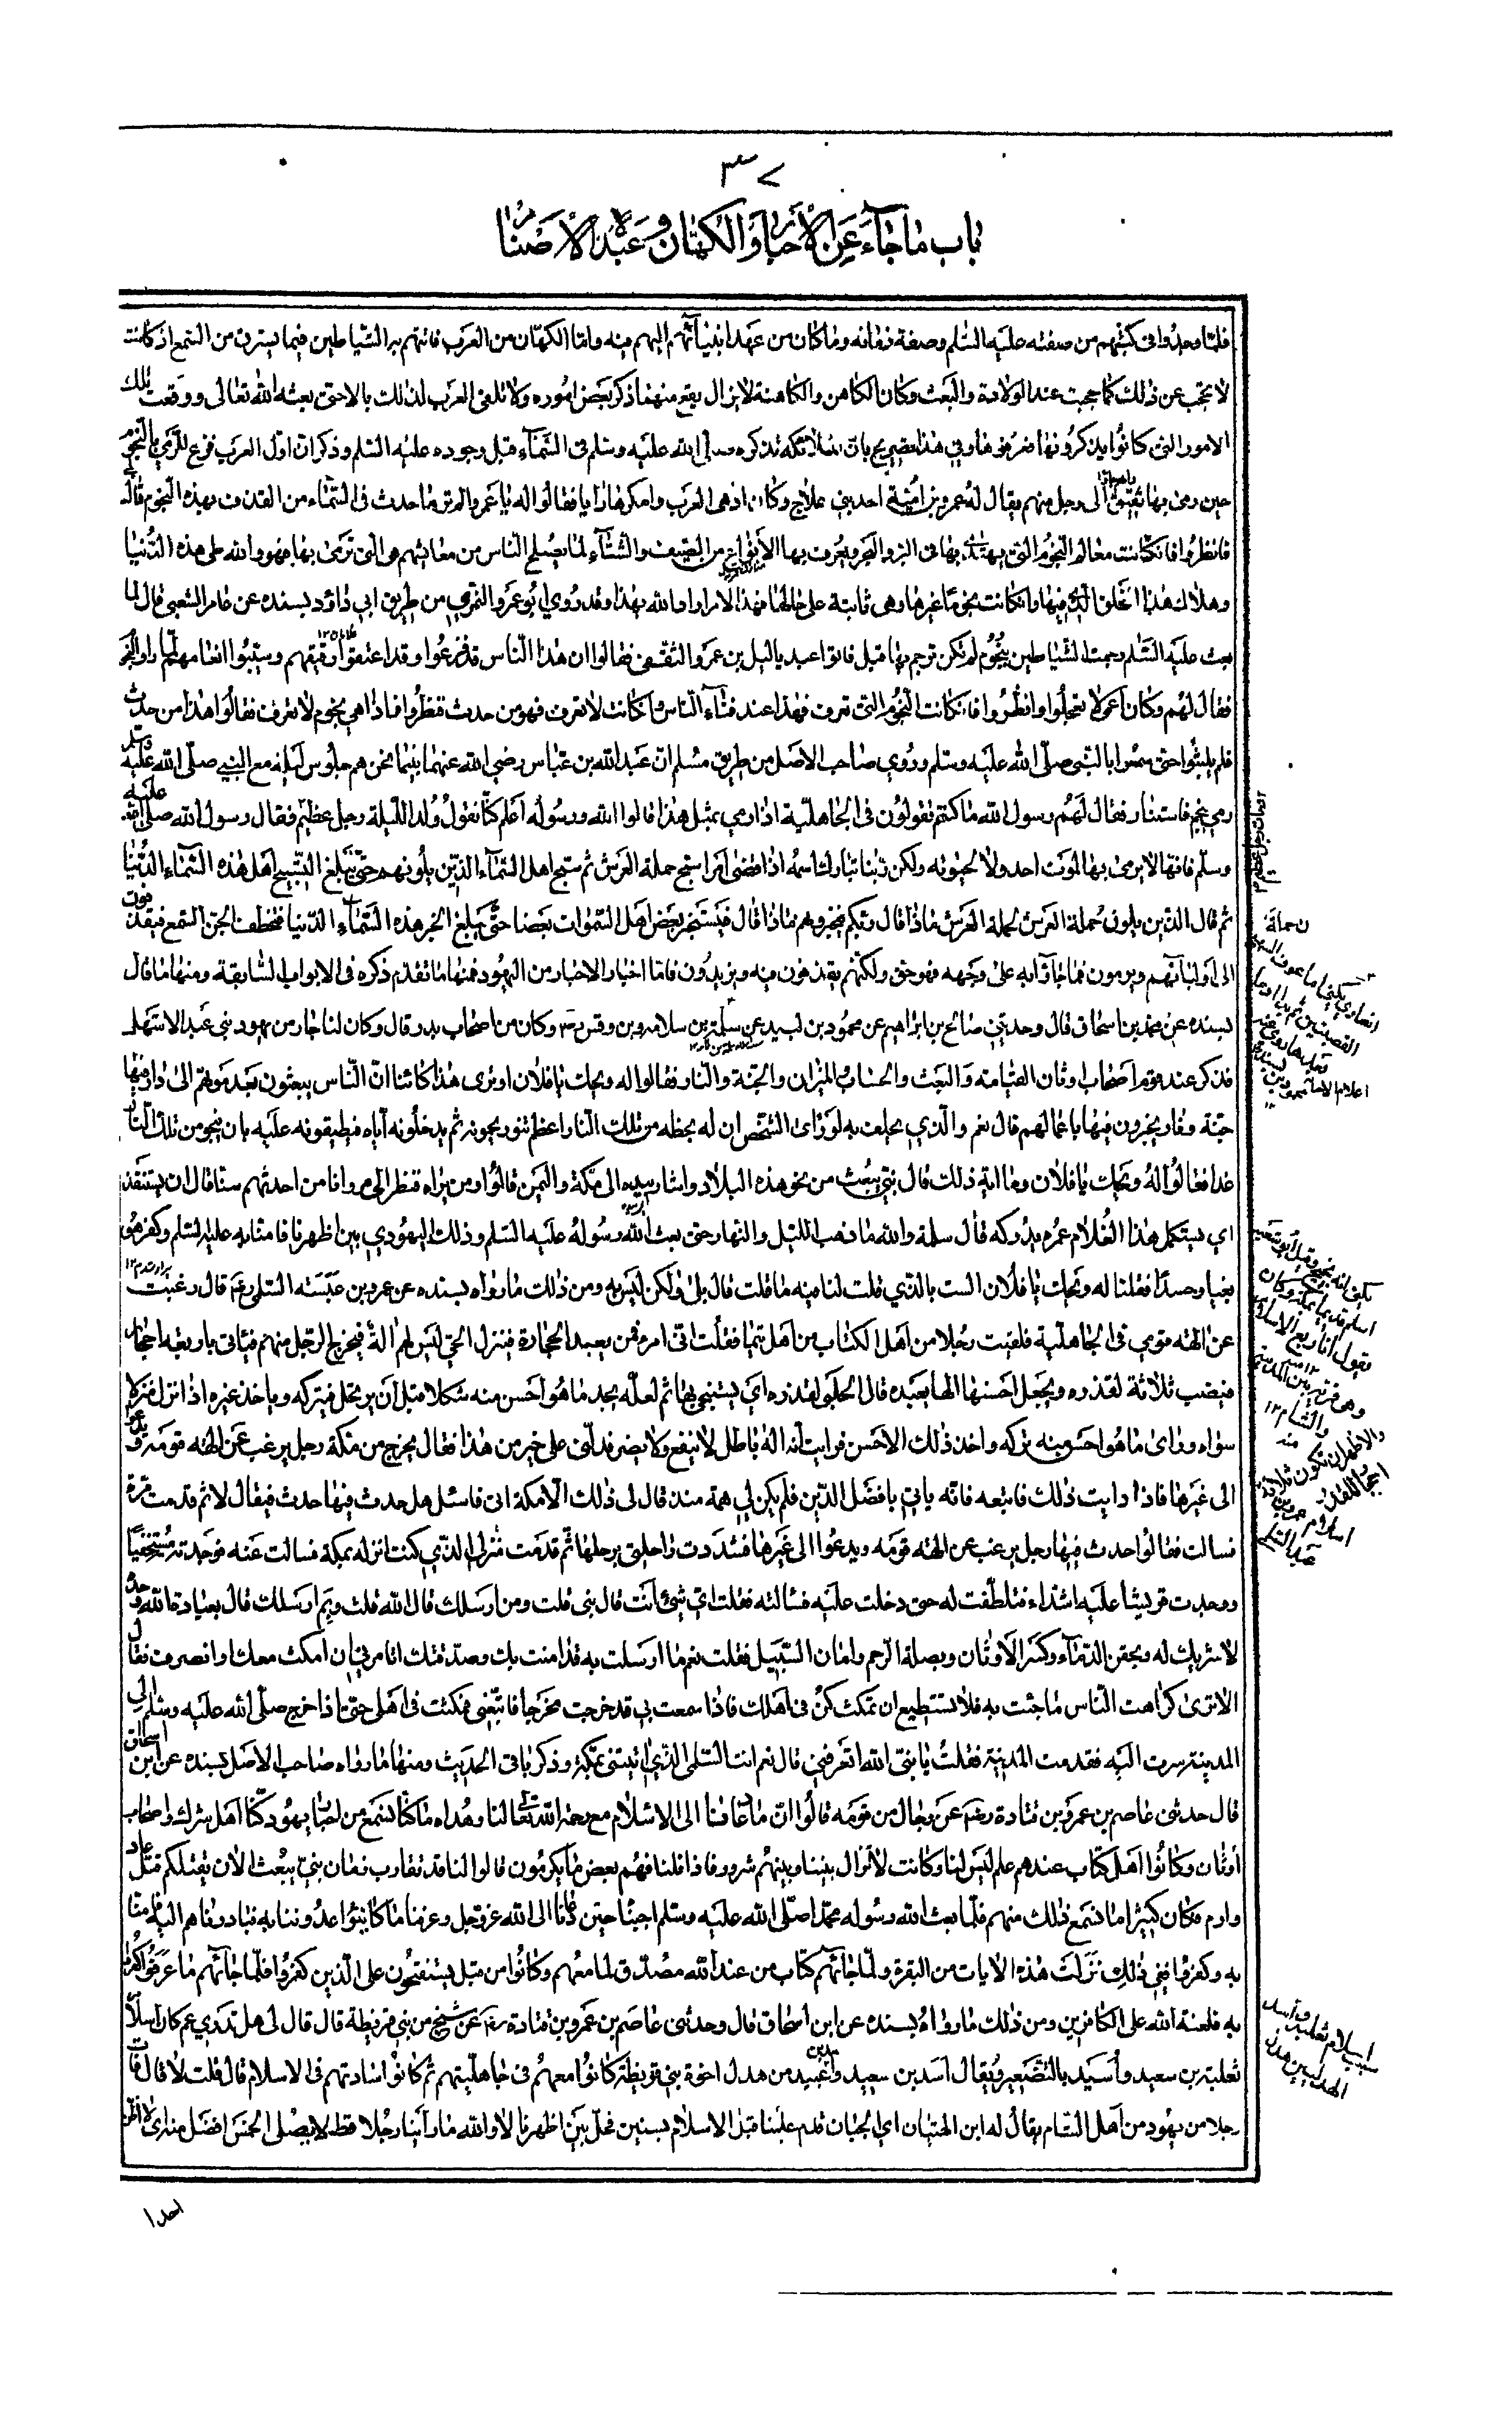 ٣٧
باب ما جاء عن الأحبار والكهان وعبدة الأصنام
فلما وجدوا في كتبهم من صفته عليه السلم وصفة زمانه وما كان من عهد انبيائهم اليهم فيه واما الكهان من العرب فاتتهم به الشياطين فيما يسترق من السمع اذ كانت
لا تحجب عن ذلك كما حجبت عند الولادة والبعث وكان الكاهن والكاهنة لا يزال يقع منهما ذكر بعض اموره ولا تلقى العرب لذلك بالا حتى بعثه الله تعالى ووقعت تلك
الامور التي كانوا يذكرونها فعرفوها وفي هذا تصريح بان الملائكة تذكره صلى الله عليه وسلم في السماء قبل وجوده عليه السلم وذكر ان اول العرب فزع للرمي بالنجوم
حين رمى بها ثقيف الى رجل منهم يقال له عمرو بن امية احد بني علاج وكان ادهى العرب وامكرها رايا فقالوا له يا عمرو الم تر ما حدث في السماء من القذف بهذه النجوم قال
فانظروا فان كانت معالم النجوم التي يهتدى بها في البر والبحر ويعرف بها الأنواء من الصيف والشتاء لما يصلح الناس من معايشهم هي التي ترمى بها فهو والله طي هذه الدنيا
وهلاك هذا الخلق الذي فيها وان كانت نجوما غيرها وهي ثابتة على حالها فهذا الامر اراد الله بهذا وقد روي ابو عمر والنمري من طريق ابي داؤد بسنده عن عامر الشعبي قال لما
بعث عليه السلم رجمت الشياطين بنجوم لم تكن ترجم بها قبل فاتوا عبد ياليل بن عمرو الثقفي فقالوا ان هذا الناس قد فزعوا وقد اعتقوا رقيقهم وسيبوا انعامهم لما راوا في النجوم
فقال لهم وكان اعمى لا تعجلوا وانظروا فان كانت النجوم التي تعرف فهذا عند فناء الناس وان كانت لا تعرف فهو من حدث فنظروا فاذا هي نجوم لا تعرف فقالوا هذا من حدث
فلم يلبثوا حتى سمعوا بالنبي صلى الله عليه وسلم وروي صاحب الاصل من طريق مسلم ان عبد الله بن عباس رضي الله عنهما بينما نحن هم جلوس ليلة مع النبي صلى الله عليه وسلم
رمي بنجم فاستنار فقال لهم رسول الله ما كنتم تقولون في الجاهلية اذا رمي بمثل هذا قالوا الله ورسوله اعلم كنا نقول ولد الليلة رجل عظيم فقال رسول الله صلى الله عليه
وسلم فانها لا يرمى بها لموت احد ولا لحيوته ولكن ربنا تبارك اسمه اذا قضى امرا سبح حملة العرش ثم سبح اهل السماء الذين يلونهم حتى يبلغ التسبيح اهل هذه السماء الدنيا
ثم قال الذين يلون حملة العرش لحملة العرش ماذا قال ربكم فيخبروهم ماذا قال فيستخبر بعض اهل السموات بعضا حتى يبلغ الخبر هذه السماء الدنيا فتخطف الجن السمع فيقذفون
الى اوليائهم ويرمون فما جاؤا به على وجهه فهو حق ولكنهم يقذفون فيه ويزيدون فاما اخبار الاحبار من اليهود فمنها ما تقدم ذكره في الابواب السابقة ومنها ما قال
بسنده عن محمد بن اسحاق قال وحدثني صالح بن ابراهيم عن محمود بن لبيد عن سلمة بن سلامة بن وقش وكان من اصحاب بدر قال وكان لنا جار من يهود بني عبد الاشهل
فذكر عند قوم اصحاب اوثان القيامة والبعث والحساب والميزان والجنة والنار فقالوا له ويحك يا فلان اوترى هذا كائنا ان الناس يبعثون بعد موتهم الى دار فيها
جنة ونار يجزون فيها باعمالهم قال نعم والذي يحلف به لو زاى الشخص ان له بحظه من تلك النار اعظم تنور يحمونه ثم يدخلونه اياه فيطبقونه عليه بان ينجو من تلك النار
غدا فقالوا له ويحك يا فلان وما اية ذلك قال نبي يبعث من نحو هذه البلاد واشار بيده الى مكة واليمن قالوا ومن يراه فنظر الي وانا من احدثهم سنا قال ان يستنفد
اي يستكمل هذا الغلام عمره يدركه قال سلمة والله ما ذهب الليل والنهار حتى بعث الله رسوله عليه السلم وذلك اليهودي بين اظهرنا فامنا به عليه السلم وكفر هو
بغيا وحسدا فقلنا له ويحك يا فلان الست بالذي قلت لنا فيه ما قلت قال بلى ولكن ليس به ومن ذلك ما رواه بسنده عن عمرو بن عبسة السلمي رضه قال رغبت
عن الهة قومي في الجاهلية فلقيت رجلا من اهل الكتاب من اهل تيما فقلت اني امرء ممن يعبد الحجارة فينزل الحي ليس لهم اله فيخرج الرجل منهم فياتي باربعة احجار
فينصب ثلاثة لقذره ويجعل احسنها الها يعبده قال الحلبي لقذره اي يستنجي بها ثم لعله يجد ما هو احسن منه شكلا قبل ان يرتحل فيتركه وياخذ غيره اذا نزل منزلا
سواه وراى ما هو احسن منه تركه واخذ ذلك الاحسن فرايت انه اله باطل لا ينفع ولا يضر فدلني على خير من هذا فقال يخرج من مكة رجل يرغب عن الهة قومه ويدعو
الى غيرها فاذا رايت ذلك فاتبعه فانه ياتي بافضل الدين فلم يكن لي همة منذ قال لى ذلك الا مكة اتى فاسئل هل حدث فيها حدث فيقال لا ثم قدمت مرة
فسالت فقالوا حدث فيها رجل يرغب عن الهة قومه ويدعوا الى غيرها فشددت راحلتي برحلها ثم قدمت منزلي الذي كنت انزله بمكة فسالت عنه فوجدته مستخفيا
ووجدت قريشا عليه اشداء فتلطفت له حتى دخلت عليه فسالته فقلت اي شئ انت قال نبي قلت ومن ارسلك قال الله قلت وبم ارسلك قال بعبادة الله وحده
لا شريك له وبحقن الدماء وكسر الاوثان وبصلة الرحم وامان السبيل فقلت نعم ما ارسلت به قد امنت بك وصدقتك اتامرني ان امكث معك او انصرف فقال
الا ترى كراهت الناس ما جئت به فلا تستطيع ان تمكث كن في اهلك فاذا سمعت بي قد خرجت مخرجا فاتبعني فمكثت في اهلى حتى اذا خرج صلى الله عليه وسلم الى
المدينة سرت اليه فقدمت المدينة فقلت يا نبي الله اتعرفني قال نعم انت السلمي الذي اتيتني بمكة وذكر باقي الحديث ومنها ما رواه صاحب الاصل بسنده عن ابن اسحاق
قال حدثني عاصم بن عمرو بن قتادة رضه عن رجال من قومه قالوا ان ما دعانا الى الاسلام مع رحمة الله تعالى لنا وهداه ما كنا نسمع من احبار يهود كنا اهل شرك واصحاب
اوثان وكانوا اهل كتاب عندهم علم ليس لنا وكانت لا تزال بيننا وبينهم شرور فاذا نلنا منهم بعض ما يكرهون قالوا لنا قد تقارب زمان نبي يبعث الآن يقتلكم قتل عاد
وارم فكان كبيرا ما نسمع ذلك منهم فلما بعث الله رسوله محمدا صلى الله عليه وسلم اجبنا حين دعانا الى الله عز وجل وعرفنا ما كانوا يتواعدوننا به فبادرناهم اليه فامنا
به وكفروا ففي ذلك نزلت هذه الايات من البقرة ولما جائهم كتاب من عند الله مصدق لما معهم وكانوا من قبل يستفتحون على الذين كفروا فلما جائهم ما عرفوا كفروا
به فلعنة الله على الكافرين ومن ذلك ما رواه بسنده عن ابن اسحاق قال وحدثني عاصم بن عمرو بن قتادة رضه عن شيخ من بني قريظة قال قال لي هل تدري عم كان اسلام
ثعلبة بن سعيد وأسيد بالتصغير ويقال اسد بن سعيد واسد بن عبيد من هدل اخوة بني قريظة كانوا معهم في جاهليتهم ثم كانوا ساداتهم في الاسلام قال قلت لا قال فان
رجلا من يهود من اهل الشام يقال له ابن الهيبان اي الجبان قدم علينا قبل الاسلام بسنين فحل بين اظهرنا لا والله ما راينا رجلا قط لا يصلى الخمس افضل منه اى لا نظن
ن حملة
سبب اسلام ثعلبة واسد
احدا